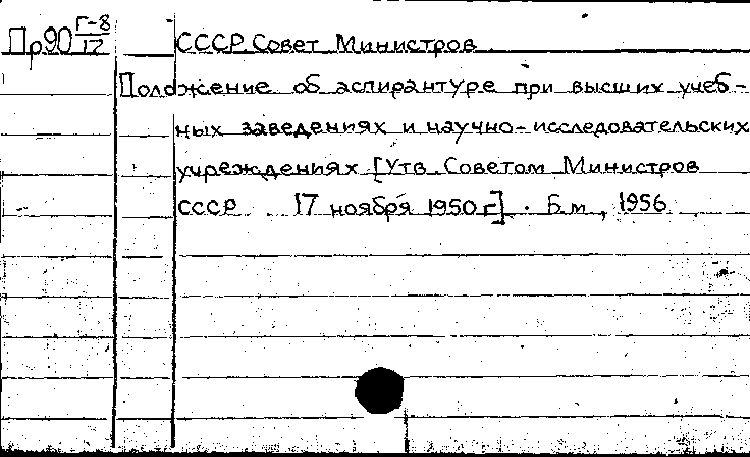 Пр90 Г-8/12 СССР. Совет Министров
Положение об аспирантуре при высших учеб-
ных заведениях и научно-исследовательских
учреждениях [Утв. Советом Министров
СССР 17 ноября 1950 г.]. Б.м., 1956.